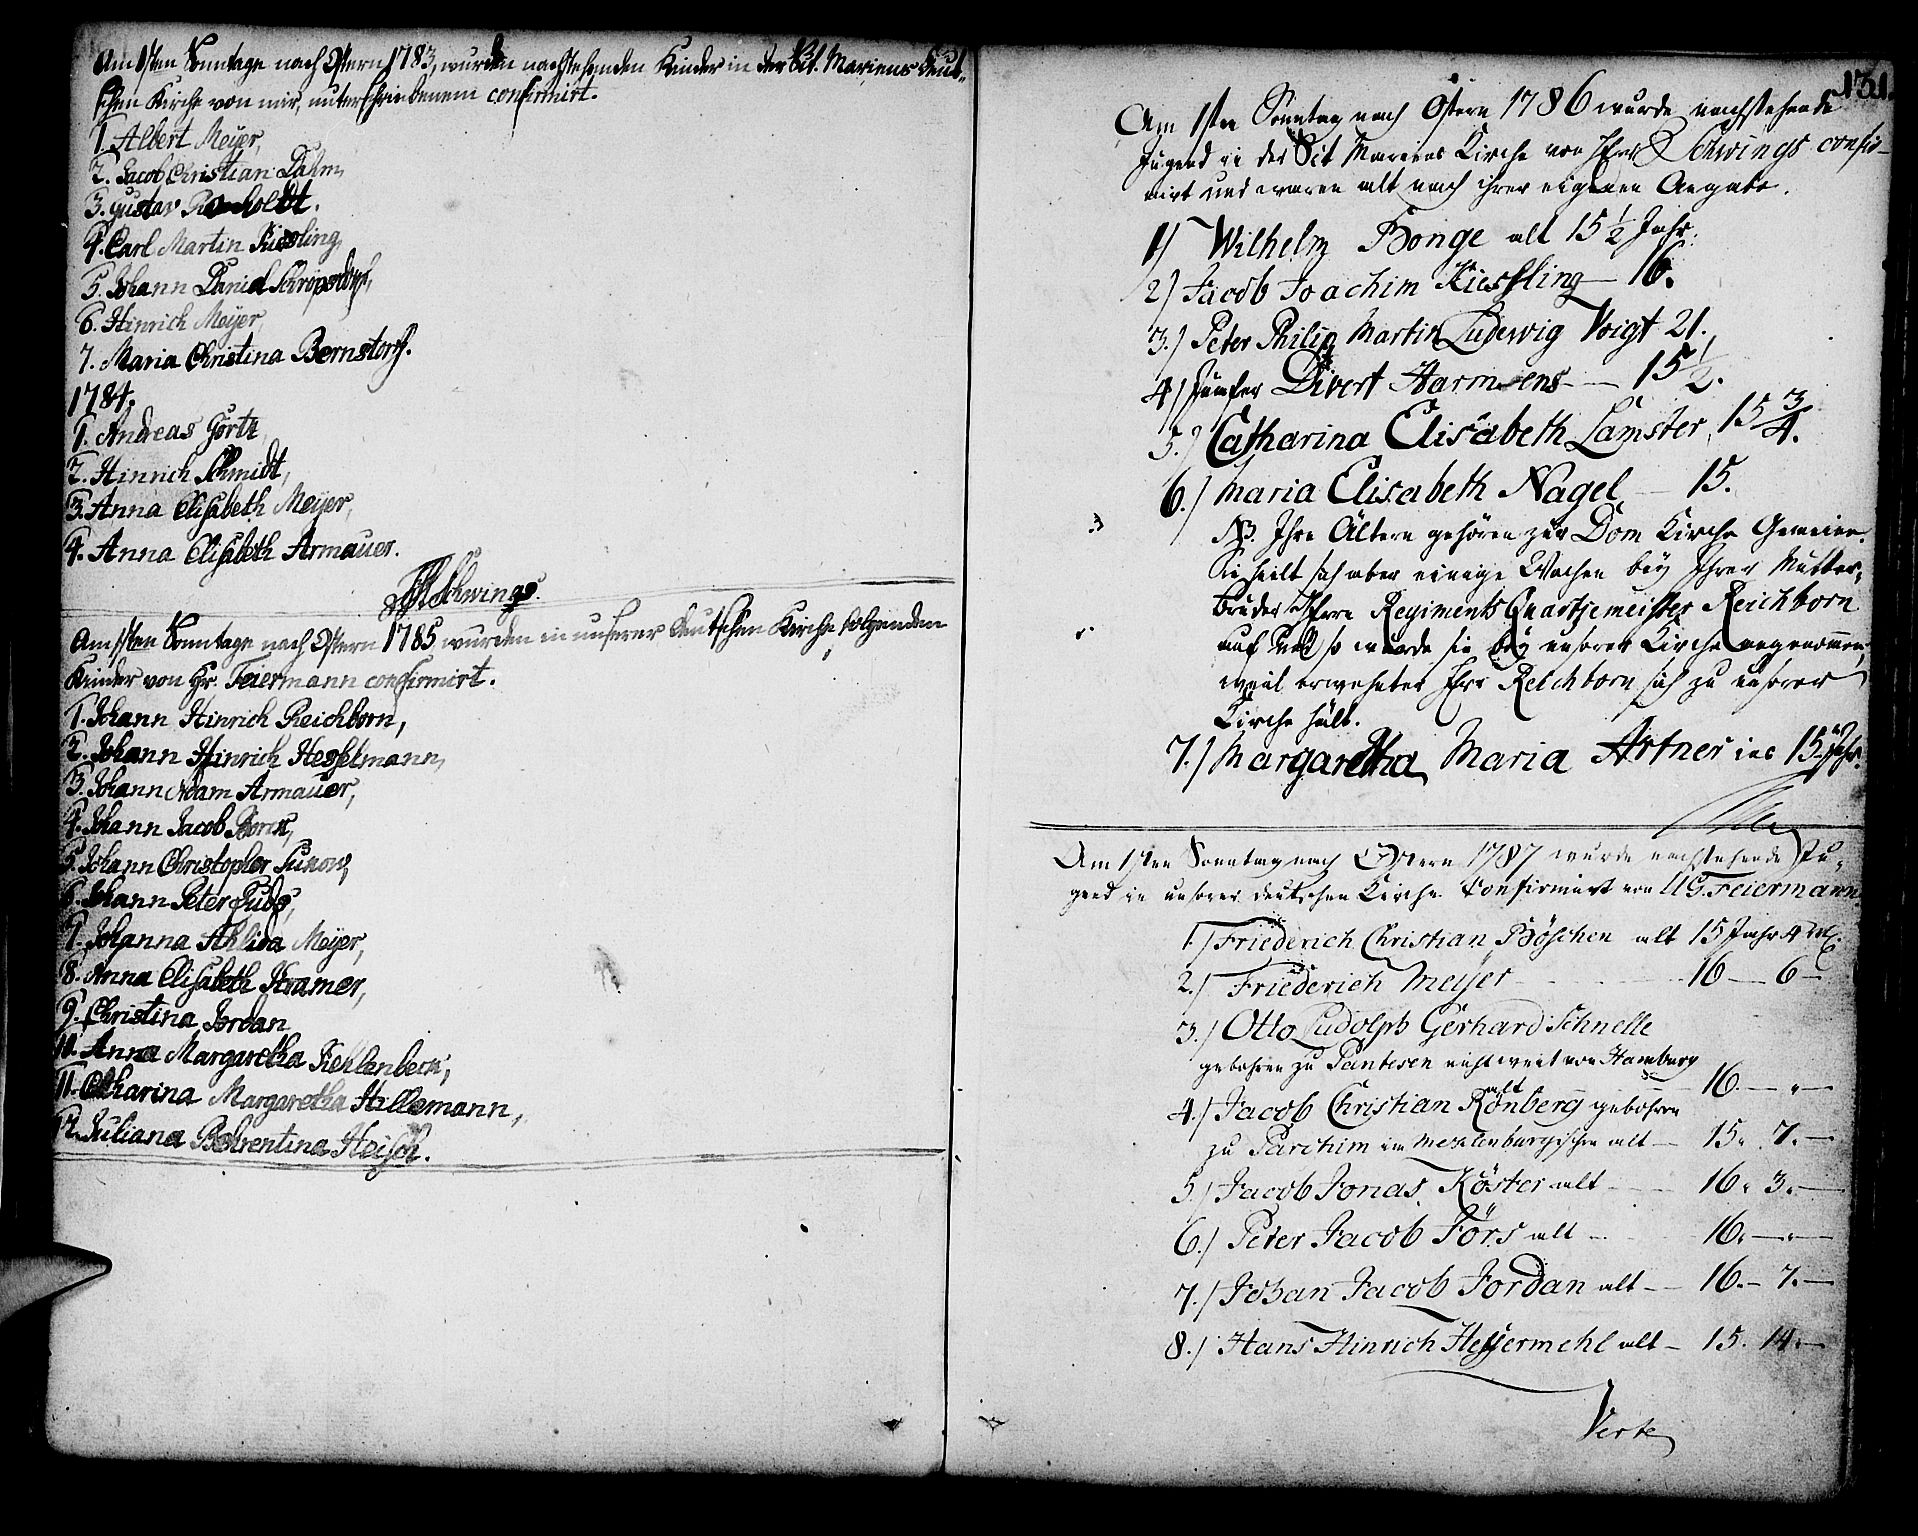 Am 1sten Sonntage nach Ostern 1783, wurden nachstehenden Kinder in der St. Mariens deut-
schen Kirche von mir, unterschriebenem confirmirt.
1. Albert Meyer,
2. Jacob Christian Dahm,
3. Gustav
4. Carl Martin Kiesling,
5. Johann Daniel
6. Hinrich Meyer,
7. Maria Christina Bernstorf.
1784.
1. Andreas Görtz
2. Hinrich Schmidt,
3. Anna Elisabeth Meyer,
4. Anna Elisabeth Armauer.
Schwings.
Am 1sten Sonntage nach Ostern 1785 wurden in unserer deutschen Kirche folgenden
Kinder von Hr. Feiermann confirmirt.
1. Johann Hinrich Reichborn,
2. Johann Hinrich Hesselmann,
3. Johann Adam Armauer,
4. Johann Jacob
5. Johann Christopher Sukow,
6. Johann Peter
7. Johanna Ahlida Meyer,
8. Anna Elisabeth Kramer,
9. Christina Jordan
10. Anna Margaretha Fehlenbeck,
11. Catharina Margaretha Hillemann,
12. Juliana Behrentina Heisch.
131.
Am 1sten Sonntag nach Ostern 1786 wurde nachstehende
Jugend in der Sct Mariens Kirche von Herr Schwings confir-
mirt und waren alt nach ihrer eigenen Angabe.
1) Wilhelm Bonge alt 15 1/2 Jahr.
2) Jacob Joachim Kiessling - 16.
3.) Peter Philip Martin Ludewig Voigt 21.
4) Jumfer Divert Harmsens - 15 1/2.
5.) Catharina Elisabeth Lamster 15 3/4.
6.) Maria Elisabeth Nagel - 15.
NB. Ihre Ältern gehören zur Dom Kirche Gemeine.
Sie hielt sich aber einige Wochen bey Ihrer Mutter-
bruder Herrn Regiments Quartiemeister Reichborn
auf und so wurde sie bey unserer Kirche angenommen,
weil erwehnter Herr Reichborn sich zu unserer
Kirche hält.
7.) Margaretha Maria Artner ins 15te Jahr.
Am 1sten Sonntag nach Ostern 1787 wurde nachstehende Ju-
gend in unserer deutschen Kirche Confirmirt von UG. Feiermann.
1.) Friederich Christian Böschen alt 15 Jahr 4 M.
2.) Friederich Meyer - 16 - 6 -
3.) Otto Ludolph Gerhard Schnelle
gebohren zu Pantesen nicht weit von Hamburg
alt 16. - " -
4.) Jacob Christian Rönberg gebohren
zu Parchim im Meklenburgischen alt - 15. 7. -
5.) Jacob Jonas Köster alt - 16. 3. -
6.) Peter Jacob Förs alt - 16. - " -
7.) Johan Jacob Jordan alt - 16. - 7. -
8.) Hans Hinrich Heyermehl alt - 15. 14. -
Verte